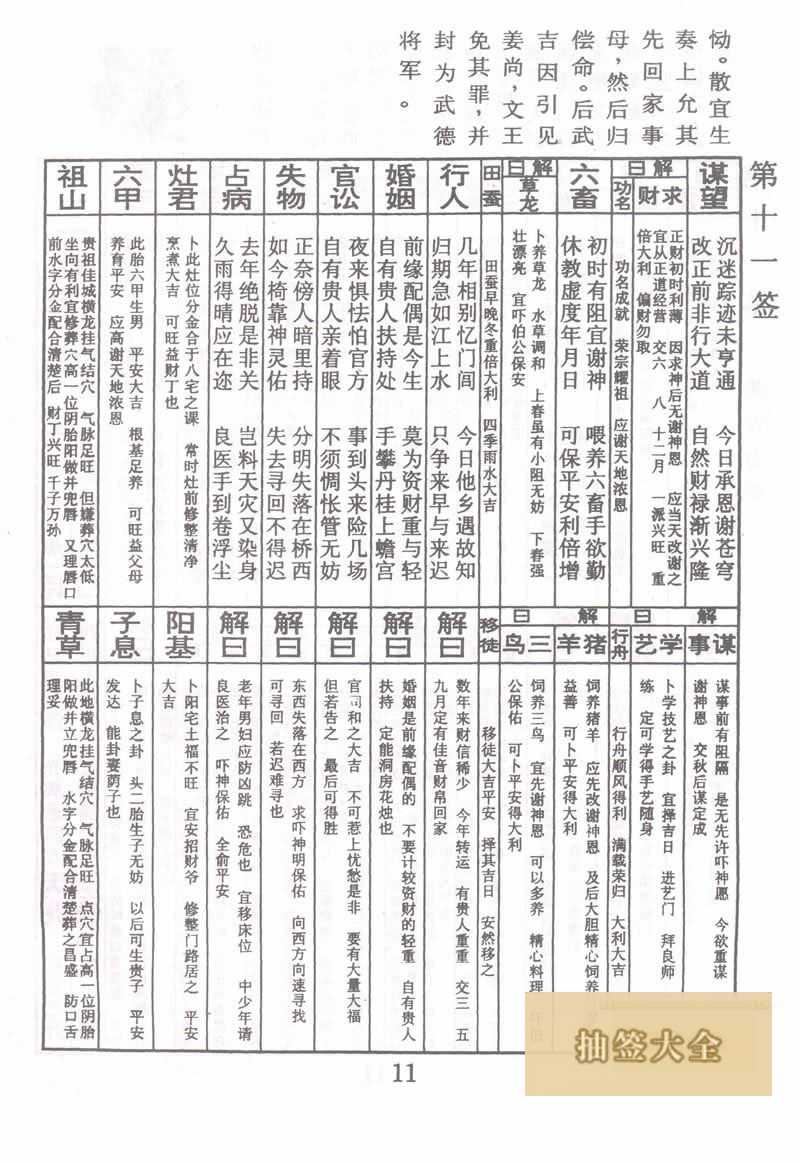 恸。散宜生
奏上允其
先回家事
母，然后归
偿命。后武
吉因引见
姜尚，文王
免其罪，并
封为武德
将军。
第十一签
谋望
沉迷踪迹未亨通　今日承恩谢苍穹
改正前非行大道　自然财禄渐兴隆
解曰
求财
正财初时利薄　因求神后无谢神恩　应当天改谢之
宜从正道经营　交六　八　十二月　一派兴旺　重
倍大利　偏财勿取
功名
功名成就　荣宗耀祖　应谢天地浓恩
六畜
初时有阻宜谢神　喂养六畜手欲勤
休教虚度年月日　可保平安利倍增
解曰
草龙
卜养草龙　水草调和　上春虽有小阻无妨　下春强
壮漂亮　宜吓伯公保安
田蚕
田蚕早晚冬重倍大利　四季雨水大吉
行人
几年相别忆门闾　今日他乡遇故知
归期急如江上水　只争来早与来迟
婚姻
前缘配偶是今生　莫为资财重与轻
自有贵人扶持处　手攀丹桂上蟾宫
官讼
夜来惧怯怕官方　事到头来险几场
自有贵人亲着眼　不须惆怅管无妨
失物
正奈傍人暗里持　分明失落在桥西
如今椅靠神灵佑　失去寻回不得迟
占病
去年绝脱是非关　岂料天灾又染身
久雨得晴应在迩　良医手到卷浮尘
灶君
卜此灶位分金合于八宅之课　常时灶前修整清净
烹煮大吉　可旺益财丁也
六甲
此胎六甲生男　平安大吉　根基足养　可旺益父母
养育平安　应高谢天地浓恩
祖山
贵祖佳城横龙挂气结穴　气脉足旺　但嫌葬穴太低
坐向有利宜修葬穴高一位阴胎阳做并兜唇　又理唇口
前水字分金配合清楚后　财丁兴旺　千子万孙
解曰
谋事
谋事前有阻隔　是无先许吓神愿　今欲重谋
谢神恩　交秋后谋定成
学艺
卜学技艺之卦　宜择吉日　进艺门　拜良师
练　定可学得手艺随身
解曰
行舟
行舟顺风得利　满载荣归　大利大吉
猪羊
饲养猪羊　应先改谢神恩　及后大胆精心饲养
益善　可卜平安得大利
三鸟
饲养三鸟　宜先谢神恩　可以多养　精心料理
公保佑　可卜平安得大利
移徒
移徒大吉平安　择其吉日　安然移之
解曰
数年来财信稀少　今年转运　有贵人重重　交三　五
九月定有佳音财帛回家
解曰
婚姻是前缘配偶的　不要计较资财的轻重　自有贵人
扶持　定能洞房花烛也
解曰
官司和之大吉　不可惹上忧愁是非　要有大量大福
但若告之　最后可得胜
解曰
东西失落在西方　求吓神明保佑　向西方向速寻找
可寻回　若迟难寻也
解曰
老年男妇应防凶跳　恐危也　宜移床位　中少年请
良医治之　吓神保佑　全俞平安
阳基
卜阳宅土福不旺　宜安招财爷　修整门路居之　平安
大吉
子息
卜子息之卦　头二胎生子无妨　以后可生贵子　平安
发达　能卦妻荫子也
青草
此地横龙挂气结穴　气脉足旺　点穴宜占高一位阴胎
阳做并立兜唇　水字分金配合清楚葬之昌盛　防口舌
理妥
抽签大全
11